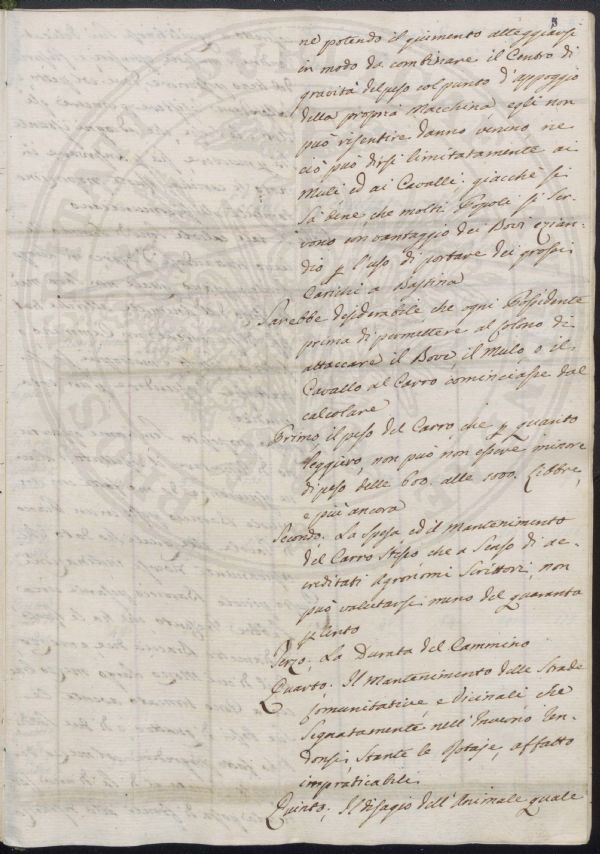 8
ne potendo il giumento atteggiarsi
in modo da combinare il Centro di
gravità del peso col punto d'appoggio
della propria Macchina egli non
può risentire danno veruno, ne
ciò può dirsi limitatamente ai
Muli ed ai Cavalli; giacche si
sà bene, che molti Popoli si ser-
vono con vantaggio dei Bovi ezian-
dio p l'uso di portare dei grossi
Carichi a Bastina
Sarebbe desiderabile che ogni Possidente
prima di permettere al Colono di
attaccare il Bove, il Mulo o il
Cavallo al Carro cominciasse dal
calcolare
Primo il peso del Carro, che p quanto
leggiero, non può non essere minore
di peso delle 600, alle 1000. Libbre,
e più ancora
Secondo. La spesa ed il Mantenimento
del Carro Stesso che a Senso di ac-
creditati Agronomi Scrittori, non
può valutarsi meno del quaranta
p Cento
Terzo. La Durata del Cammino
Quarto. Il Mantenimento delle Strade
Comunitative e Vicinali che
Segnatamente nell'Inverno ren-
donsi, Stante le affatto
impraticabili
Quinto, Il disagio dell'Animale quale